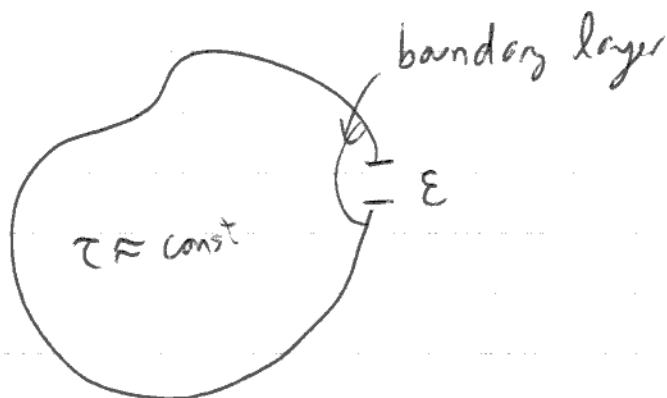 boundary layer
ε
τ ≈ const